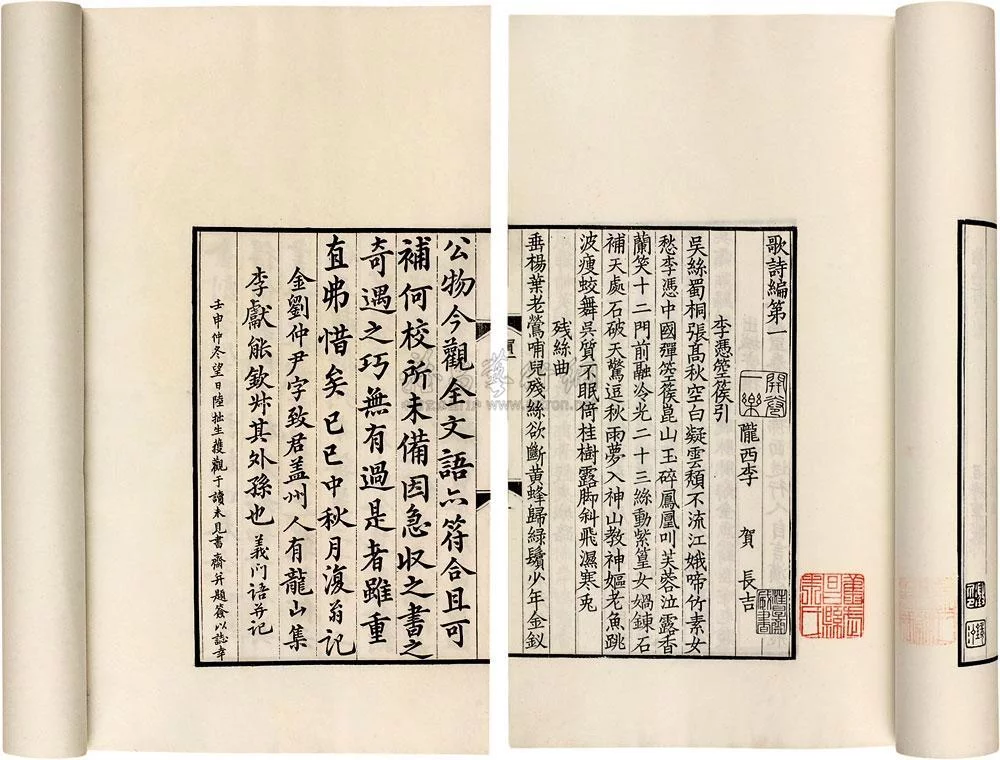 歌詩編第一
隴西李 賀 長吉
李憑箜篌引
吳絲蜀桐張高秋空白凝雲頹不流江娥啼竹素女
愁李憑中國彈箜篌崑山玉碎鳳凰叫芙蓉泣露香
蘭笑十二門前融冷光二十三絲動紫篁女媧鍊石
補天處石破天驚逗秋雨夢入神山教神嫗老魚跳
波瘦蛟舞吳質不眠倚桂樹露脚斜飛濕寒兎
残絲曲
垂楊葉老鶯哺兒殘絲欲斷黄蜂歸綠鬢少年金釵
公物今觀全文語亦符合且可
補何校所未備因急収之書之
奇遇之巧無有過是者雖重
直弗惜矣己巳中秋月復翁記
金劉仲尹字致君盖州人有龍山集
李獻能欽叔其外孫也 義門語并記
壬申仲冬望日陸拙生獲觀于讀未見書齋并題簽以誌幸